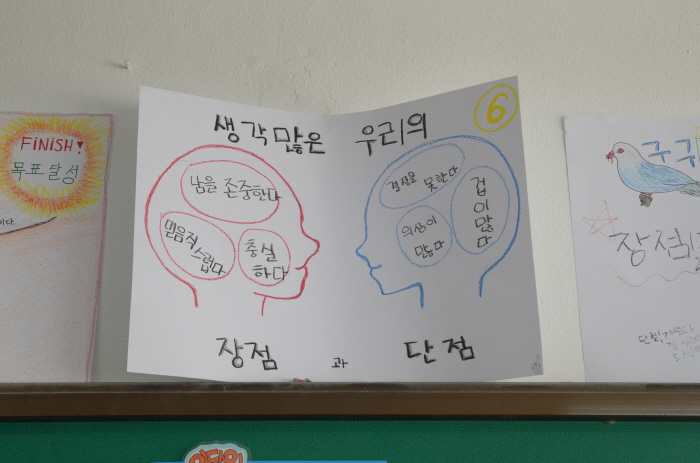 FINISH!
목표달성
생각많은 우리의
6
남을 존중한다
믿음직
스럽다
충실
하다
결심을 못한다
의심이
많다
겁이많다
장점 과 단점
장점